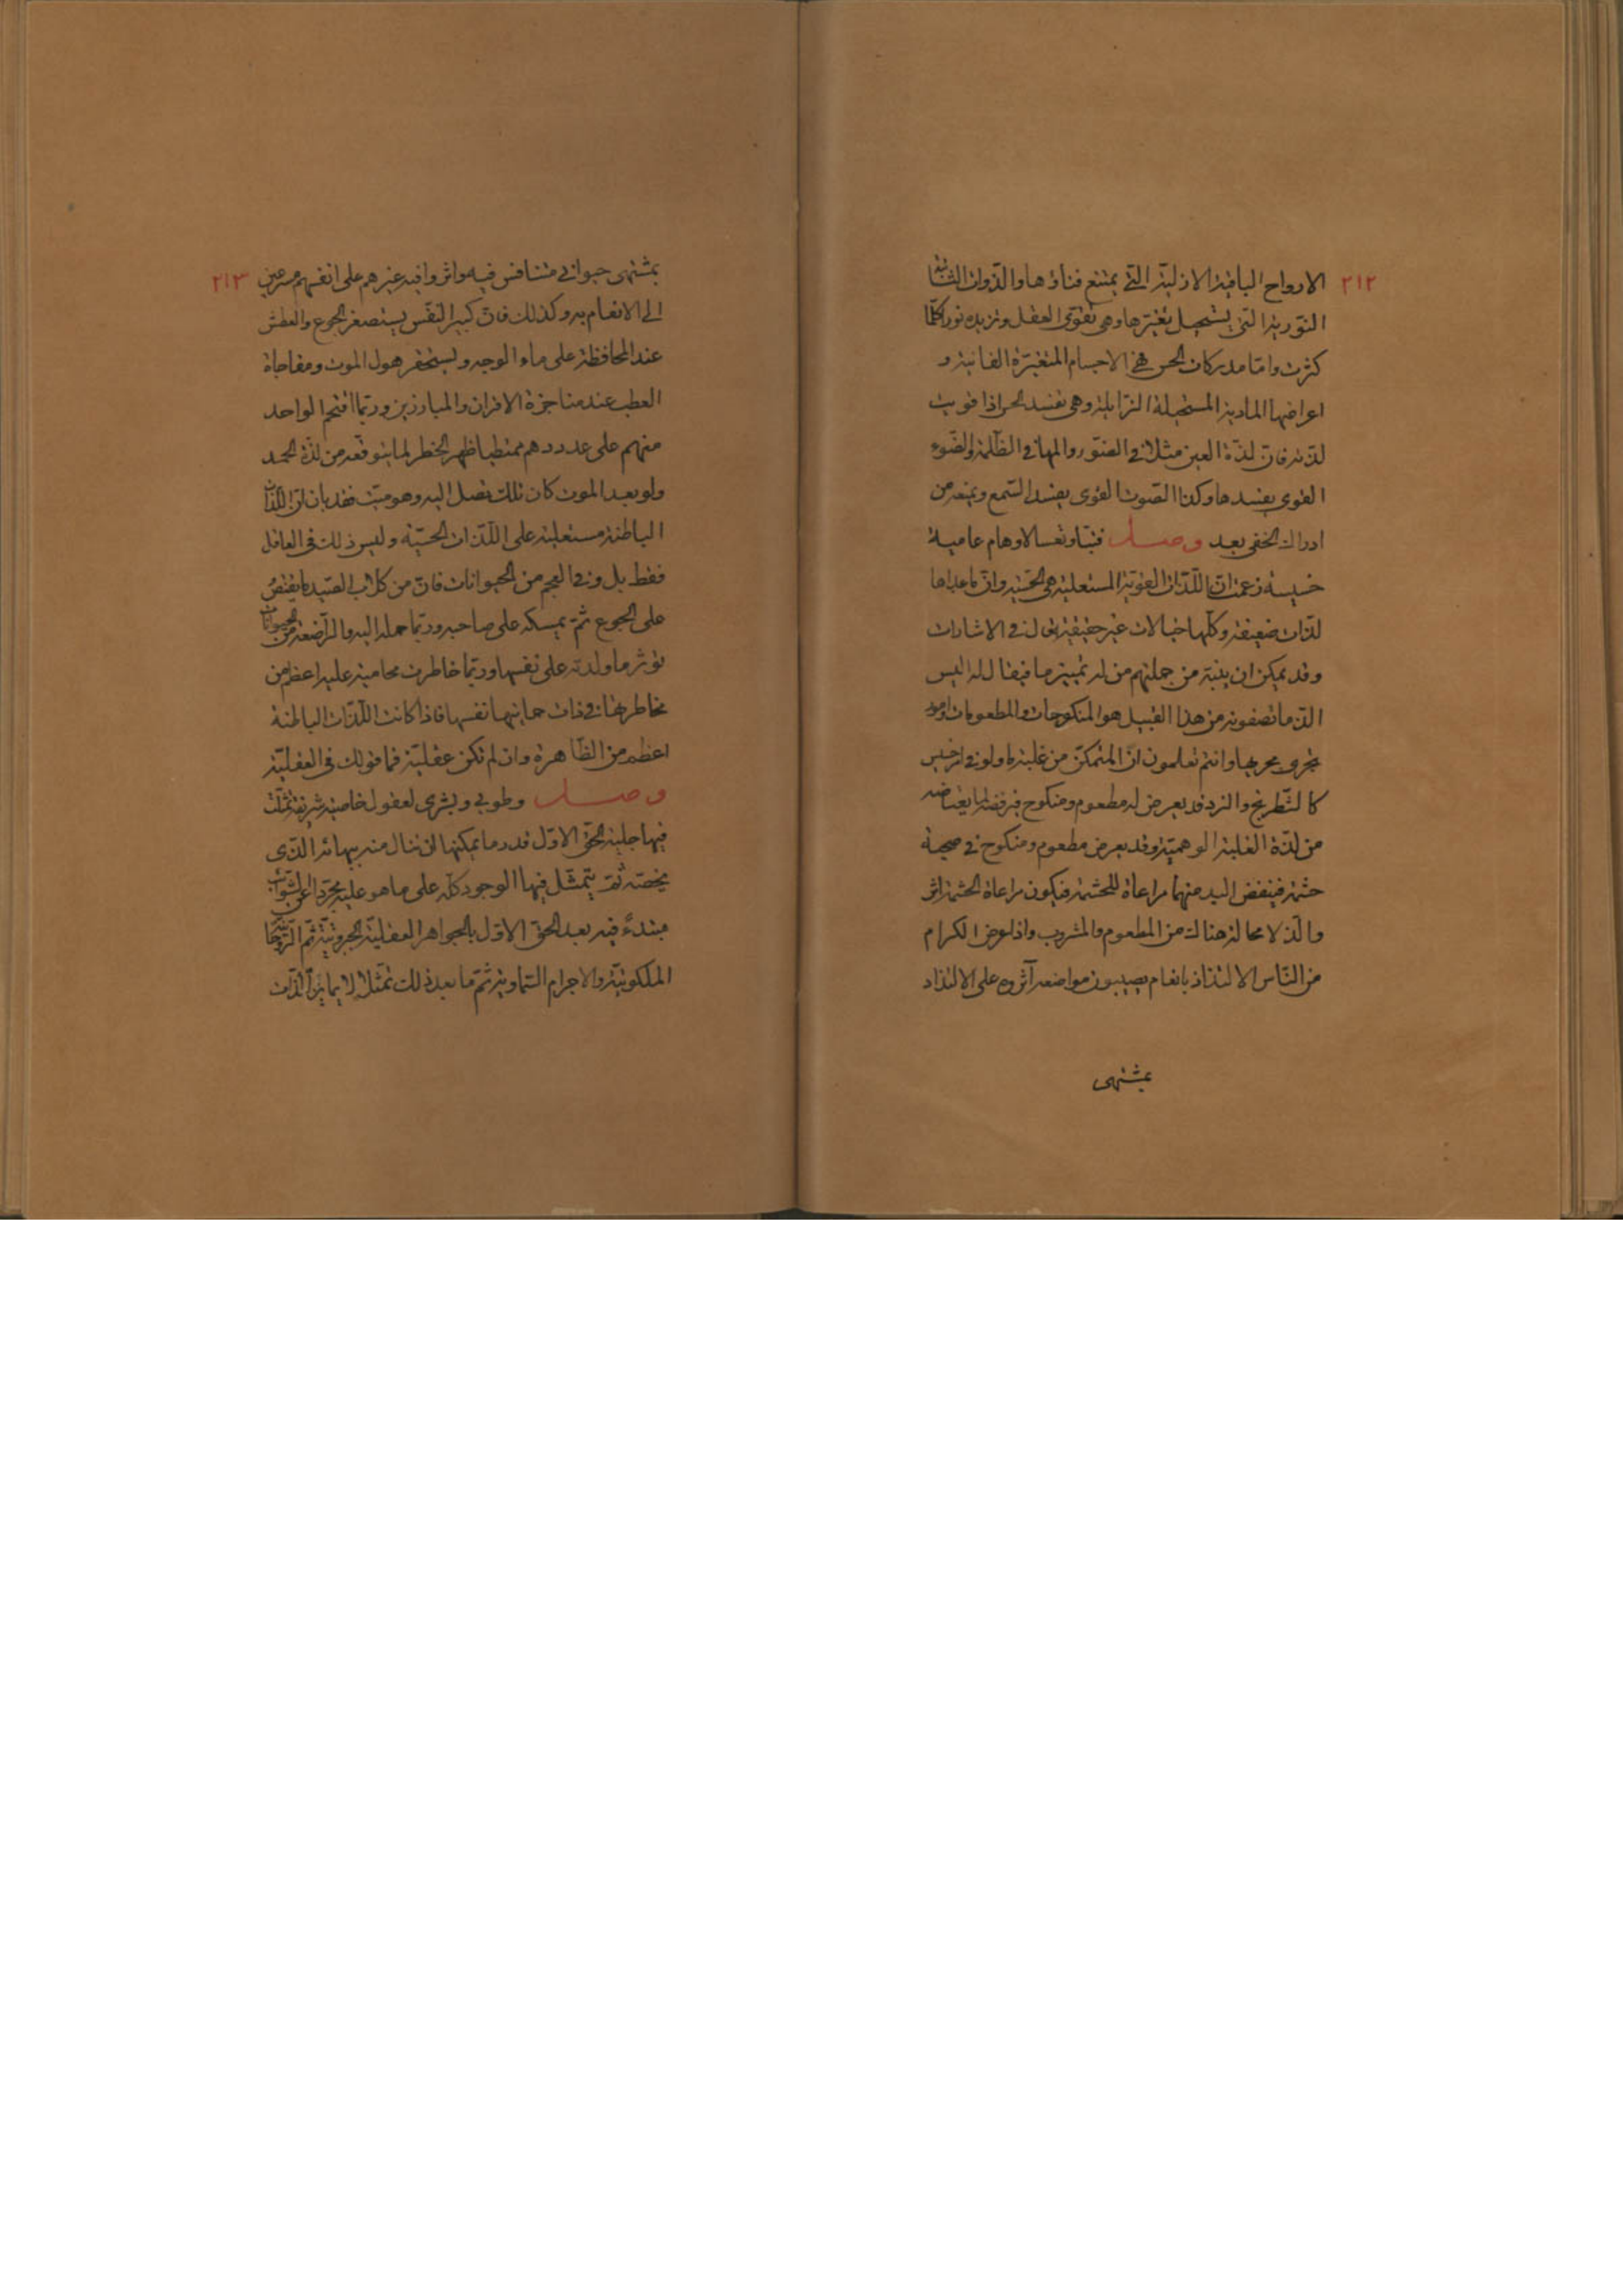 ٢١٢
الارواح الباقية الازلية التي يمتنع فناؤها والذوات الثابتة
النورية التي يستحيل تغيرها وهي تقوي العقل وتزيده نورا كلما
كثرت واما مدركات الحس فهي الاجسام المتغيرة الفانية و
اعراضها المادية المستحيلة الزايلة وهي تفسد الحس اذا قويت
لذته فان لذة العين مثلا في الضوء والمها في الظلمة والضوء
القوي يفسدها وكذا الصوت القوي يفسد السمع ويمنعه من
ادراك الخفي بعد وصل فتبا وتعسا لاوهام عامية
خسيسة زعمت ان اللذات القوية المستعلية هي الحسية وان ما عداها
لذات ضعيفة وكلها خيالات غير حقيقية قال في الاشارات
وقد يمكن ان ينبه من جملتهم من له تمييز ما فيقال له اليس
الذ ما تصفونه من هذا القبيل هو المنكوحات والمطعومات وامور
تجري مجريها وانتم تعلمون ان المتمكن من غلبة ما ولو في امر خسيس
كالشطرنج والنرد قد يعرض له مطعوم ومنكوح فيرفضه لما يعتاضه
من لذة الغلبة الوهمية وقد يعرض مطعوم ومنكوح في صحبة
حشمة فينفض اليد منهما مراعاة للحشمة فيكون مراعاة الحشمة اثر
والذ لا محالة هنالك من المطعوم والمشروب واذا عرض للكرام
من الناس الالتذاذ بانعام يصيبون مواضعه آثروه على الالتذاذ
بمشتهى
٢١٣
بمشتهى حيواني متنافس فيه واثروا فيه غيرهم على انفسهم مسرعين
الى الانعام به وكذلك فان كبير النفس يستصغر الجوع والعطش
عند المحافظة على ماء الوجه ويستحقر هول الموت ومفاجاة
العطب عند مناجزة الاقران والمبارزين وربما اقتحم الواحد
منهم على عدد دهم ممتطيا ظهر الخطر لما يتوقعه من لذة الحمد
ولو بعد الموت كان تلك تصل اليه وهو ميت فقد بان ان اللذات
الباطنة مستعلية على اللذات الحسية وليس ذلك في العاقل
فقط بل وفي العجم من الحيوانات فان من كلاب الصيد ما يقتنص
على الجوع ثم يمسكه على صاحبه وربما حمله اليه والراضعة من الحيوانات
تؤثر ما ولدته على نفسها وربما خاطرت محامية عليه اعظم من
مخاطرتها في ذات حمايتها نفسها فاذا كانت اللذات الباطنة
اعظم من الظاهرة وان لم تكن عقلية فما قولك في العقلية
وصل وطوبى وبشرى لعقول خاصية شريفة تمثلت
فيها جلية الحق الاول قدر ما يمكنها ان تنال منه ببهائه الذي
يخصه ثم يتمثل فيها الوجود كله على ما هو عليه مجردا عن الشوائب
مبتدءً فيه بعد الحق الاول بالجواهر العقلية الجبروتية ثم الروحانية
الملكوتية والاجرام السماوية ثم ما بعد ذلك تمثلا لا يمايز الذات